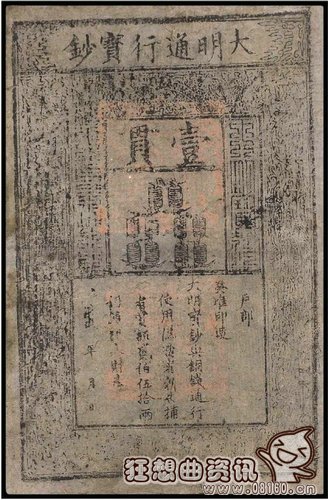 大明通行寶鈔
壹貫
戶部
奏准印造
大明寶鈔與銅錢通行
使用偽造者斬告捕
者賞銀貳伯伍拾兩
仍給犯人財產
年 月 日
狂想曲资讯
www.08160.cn